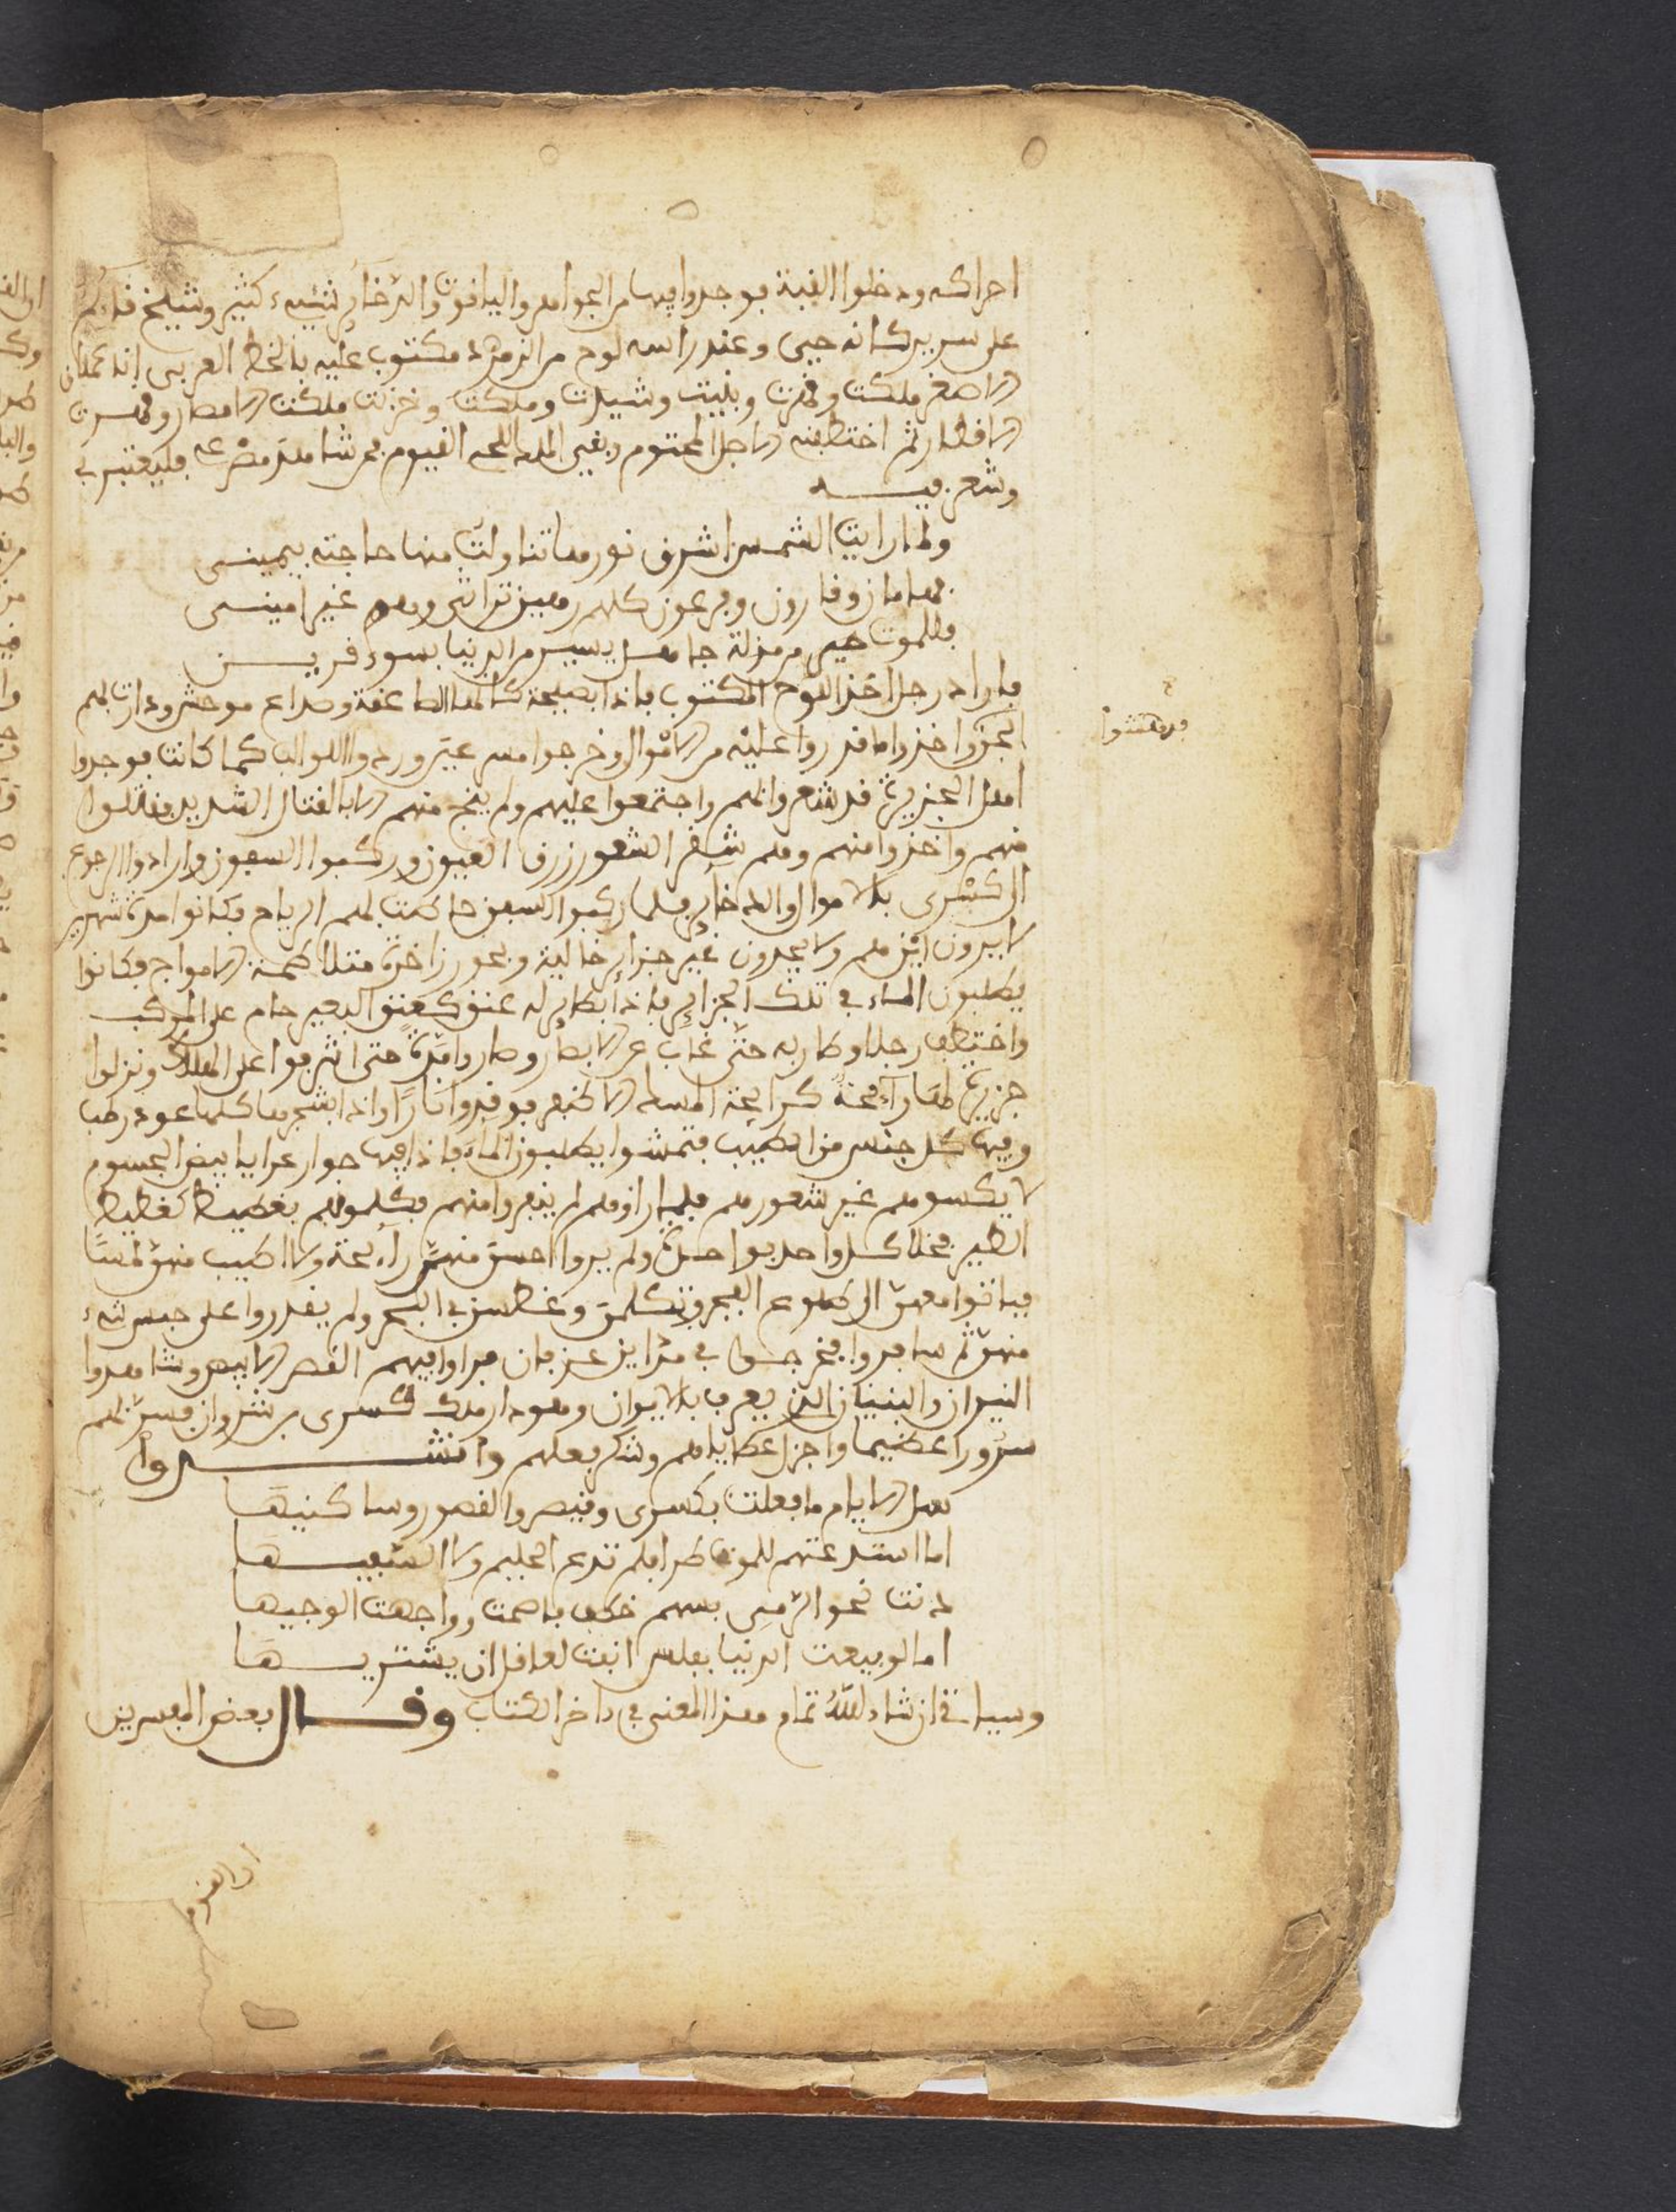 احراكه ودخلوا القبة فوجدوا فيها من الجواهر والياقوت والذخائر شيىء كثير وشيخ قائم
على سرير كانه حيى وعند راسه لوح من الزمرد مكتوب عليه بالخط العربي انه عملاق
الاصغر ملكت وقهرت وبنيت وشيدت وملكت وخزنت ملكت الامصار وقهرت
الاقطار ثم اختطفنه الاجل المحتوم وبقي الملك للحي القيوم فمن شاهد مصرعي فليعتبر بي
وشعر فيه
ولما رايت الشمس اشرق نورها تناولت منها حاجته بيميني
فهامان وقارون وفرعون كلهم رهين تراثي وهو غير اميني
فللموت خير من مذلة جاهل يسير من الدنيا بسوء قرين
فاراد رجل اخذ اللوح المكتوب فاذا بصيحة كانها الصاعقة وصداع موحش ودارت لهم
الجن واخذوا ما قدروا عليه من الاموال وخرجوا مسرعين وردوا اللوالب كما كانت فوجدوا
فدهشوا
اهل الجزيرة قد شعروا لهم واجتمعوا عليهم ولم ينج منهم الا بالقتال الشديد فقتلوا
منهم واخذوا منهم وهم شقر الشعور زرق العيون وركبوا السفن وارادوا الرجوع
الى كسرى بالاموال والدخاير فلما ركبوا السفن هاجت لهم الرياح فكانوا مدة شهرين
لا يدرون اين هم ولا يجدون غير جزاير خالية وبحور زاخرة متلاطمة الامواج فكانوا
يطلبون الماء في تلك الجزاير فاذا بطاير له عنق كعنق البعير حام على المركب
واختطف رجلا وطار به حتى غاب عن الابصار وصاروا مدة حتى اشرفوا على الهلاك ونزلوا
جزيرة لها رائحة كرائحة المسك الاذفر فوقدوا نارا واذا شجرها كلها عود رطب
وفيها كل جنس من الطيب فتمشوا يطلبون الماء فاذا فيها جوار عرايا بيض الجسوم
لا يكسوهم غير شعورهم فلما راوهم لم ينفروا منهم فكلموهم بغطيط كغطيط
الطير فخلا كل واحد بواحدة ولم يروا احسن منهن رائحة ولا اطيب منهن لمسا
فباتوا معهن الى طلوع الفجر وتكلمن وغطسن في البحر ولم يقدروا على حبس شيء
منهن ثم سافروا فخرجوا في مداين عزفان فراوا فيهم القصر الابيض وشاهدوا
النيران والبنيان الذي يعرف بالايوان وهو دار ملك كسرى نوشروان فسر بهم
سرورا عظيما واجزل عطاياهم وشكر فعلهم وانشدوا
سل الايام ما فعلت بكسرى وقيصر والقصور وساكنيها
اما استدعتهم للموت طرا فلم تدع الحليم ولا السفيها
دنت نحو الدني بسهم خطف فاصمت وواجهت الوجيها
اما لو بيعت الدنيا بفلس انفت لعاقل ان يشتريها
وسياتي ان شاء الله تمام هذا المعنى في داخر الكتاب وقال بعض المفسرين